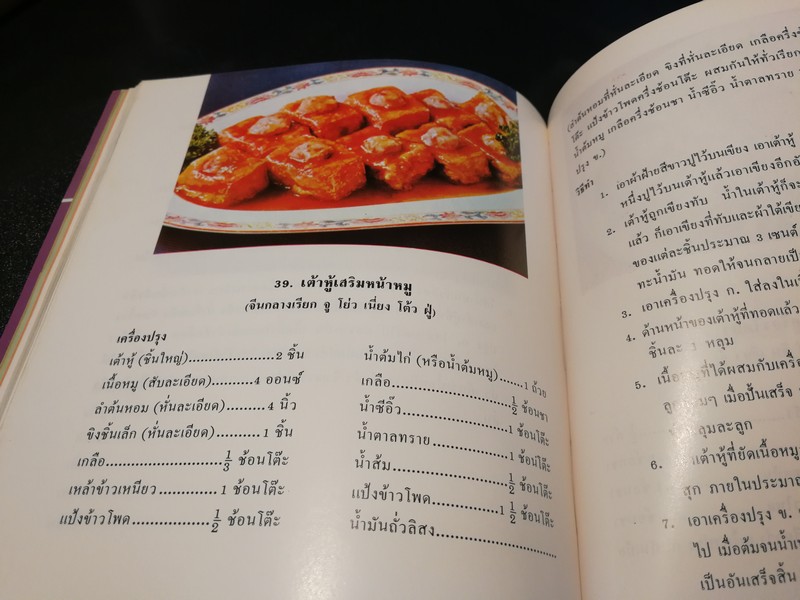 39. เต้าหู้เสริมหน้าหมู
(จีนกลางเรียก จู โย่ว เนี่ยง โต้ว ฝู่)
เครื่องปรุง
เต้าหู้ (ชิ้นใหญ่)......................2 ชิ้น
เนื้อหมู (สับละเอียด)..........4 ออนซ์
ลำต้นหอม (หั่นละเอียด).........4 นิ้ว
ขิงชิ้นเล็ก (หั่นละเอียด)..........1 ชิ้น
เกลือ.............................1/3 ช้อนโต๊ะ
เหล้าข้าวเหนียว..............1 ช้อนโต๊ะ
แป้งข้าวโพด...................1/2 ช้อนโต๊ะ
น้ำต้มไก่ (หรือน้ำต้มหมู)......1 ถ้วย
เกลือ.............................1/2 ช้อนชา
น้ำซีอิ๊ว..........................1 ช้อนโต๊ะ
น้ำตาลทราย...................1 ช้อนโต๊ะ
น้ำส้ม.............................1/2 ช้อนโต๊ะ
แป้งข้าวโพด...................1 1/2 ช้อนโต๊ะ
น้ำมันถั่วลิสง..............................
(ลำต้นหอมที่หั่นละเอียด ขิงที่หั่นละเอียด เกลือครึ่งช้
โต๊ะ แป้งข้าวโพดครึ่งช้อนโต๊ะ ผสมกันให้ทั่วเรียก
น้ำต้มหมู เกลือครึ่งช้อนชา น้ำซีอิ๊ว น้ำตาลทราย
ปรุง ข.)
วิธีทำ
1. เอาผ้าฝ้ายสีขาวปูไว้บนเขียง เอาเต้าหู้
หนึ่งปูไว้บนเต้าหู้แล้วเอาเขียงอีกอัน
2. เต้าหู้ถูกเขียงทับ น้ำในเต้าหู้ก็จะ
แล้ว ก็เอาเขียงที่ทับและผ้าใต้เขีย
ของแต่ละชิ้นประมาณ 3 เซนต์
ทะน้ำมัน ทอดให้จนกลายเป็
3. เอาเครื่องปรุง ก. ใส่ลงในเ
4. ด้านหน้าของเต้าหู้ที่ทอดแล้ว
ชิ้นละ 1 หลุม
5. ที่ได้ผสมกับเครื่อ
เมื่อปั้นเสร็จ
หลุมละลูก
6. เต้าหู้ที่ยัดเนื้อหมู
สุก ภายในประมา
7. เอาเครื่องปรุง ข.
ไป เมื่อต้มจนน้ำเ
เป็นอันเสร็จสิ้น